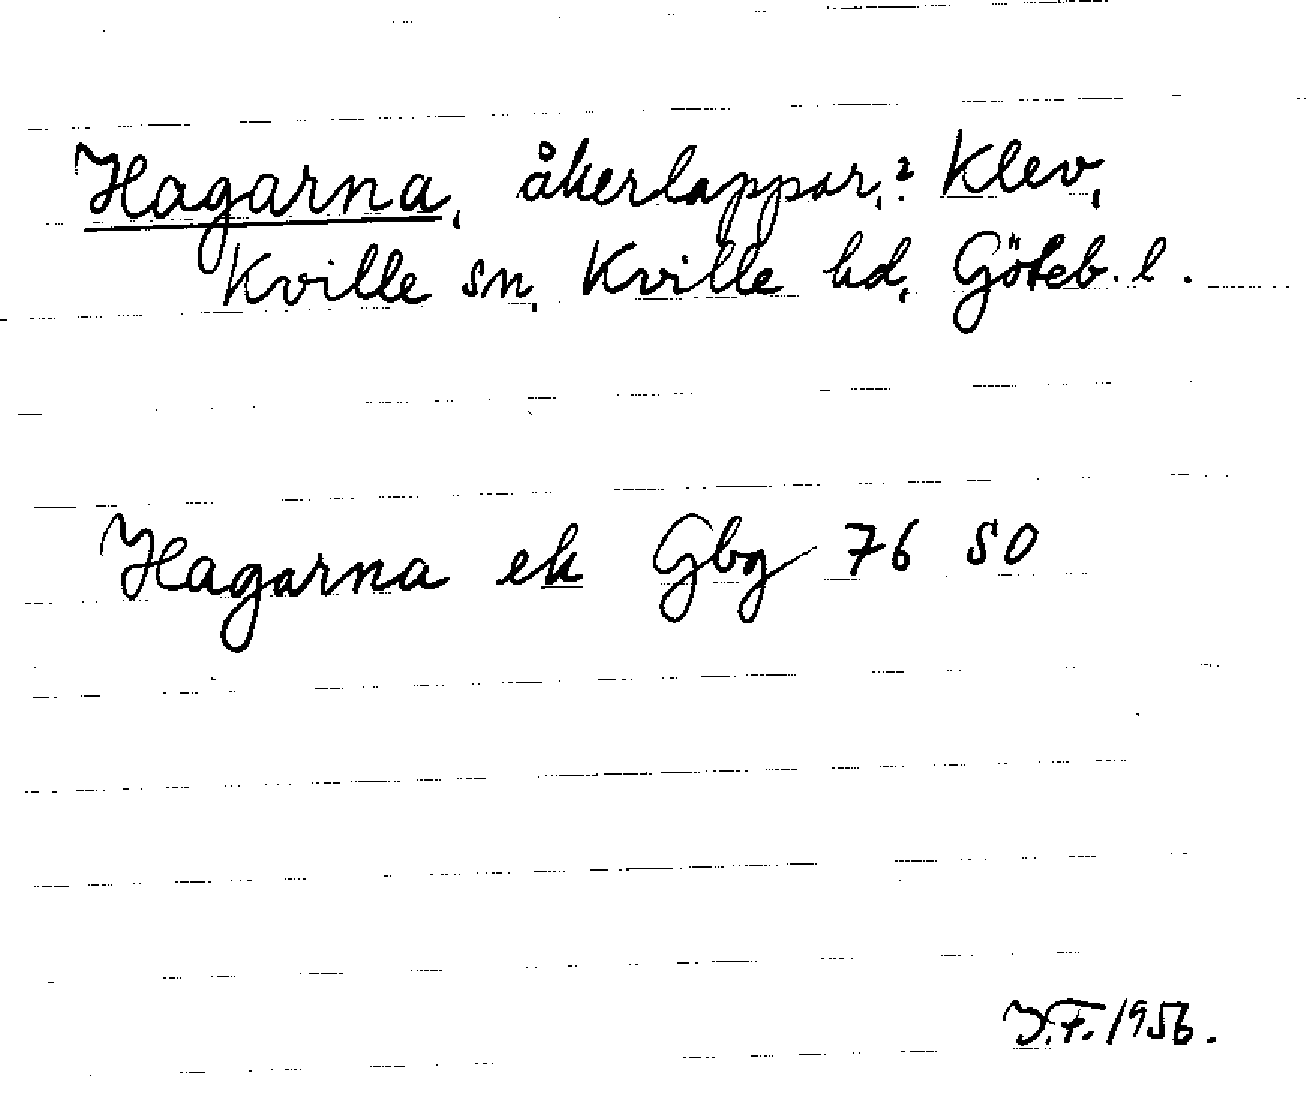 Hagarna, åkerlappar,? Klev,
Kville sn, Kville hd, Göteb. l.
Hagarna ek Gbg 76 SO
J.F. 1956.